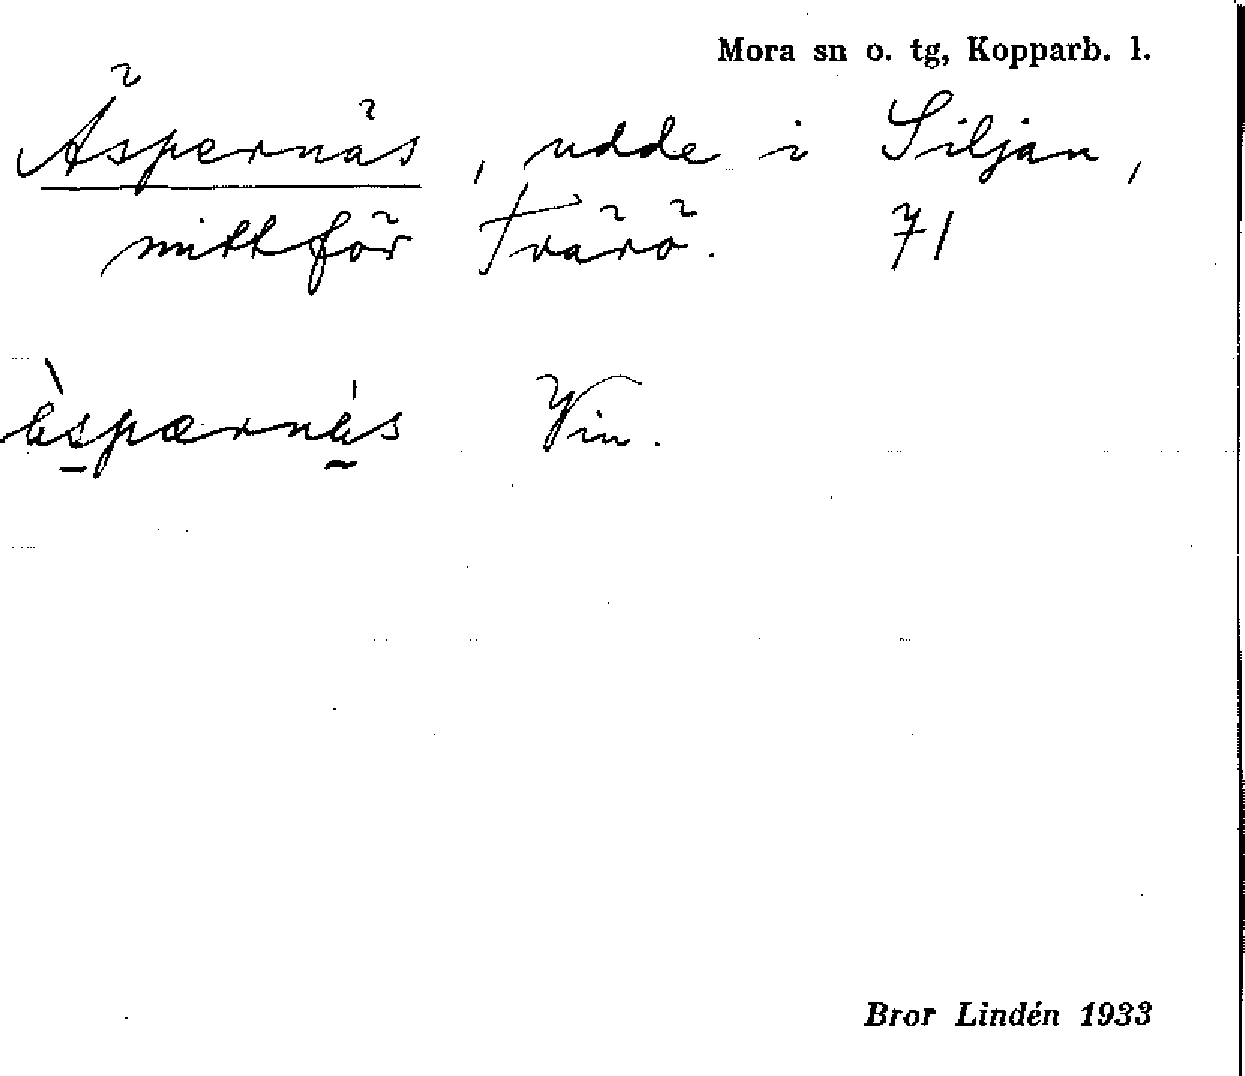 Mora sn o. tg, Kopparb. l.
Äspernäs, udde i Siljan,
mittför Tvärö. 71
Vin.
Bror Lindén 1933